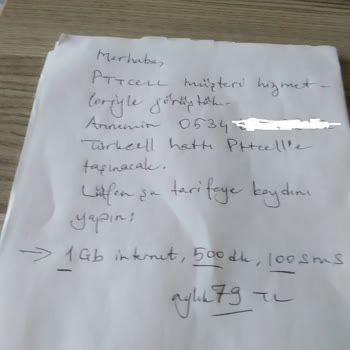 Merhaba,
PTTcell müşteri hizmet-
leriyle görüştük.
Annemin 0534
Türkcell hattı Pttcell'e
taşınacak.
Lütfen şu tarifeye kaydını
yapın:
→ 1Gb internet, 500 dk, 100 sms
aylık 79 TL